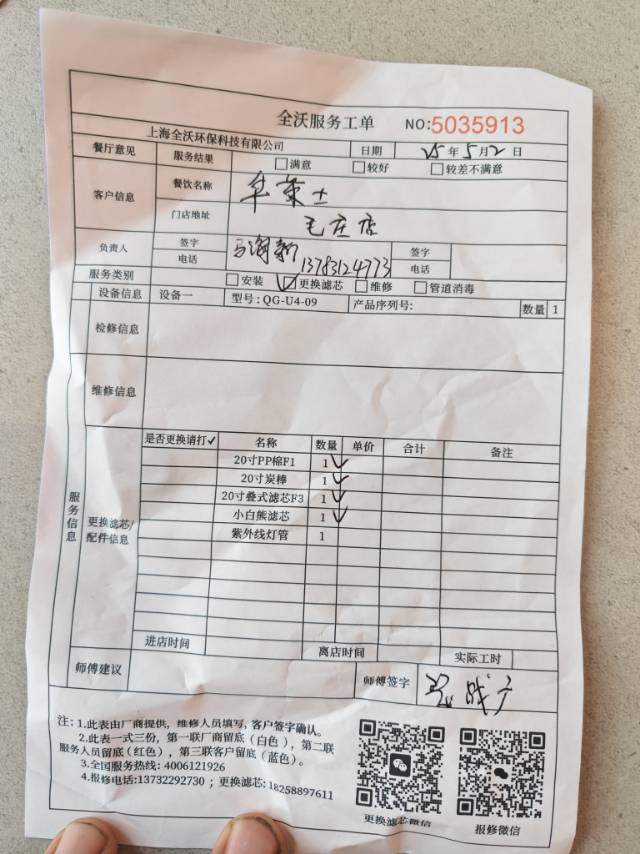 全沃服务工单 NO:5035913
上海全沃环保科技有限公司 日期 25年5月2日
餐厅意见 服务结果 □满意 □较好 □较差不满意
客户信息 餐饮名称 华莱士
门店地址 毛庄店
负责人 签字 签字
电话 13783124773 电话
服务类别 □安装 ☑更换滤芯 □维修 □管道消毒
设备信息 设备一 型号：QG-U4-09 产品序列号: 数量 1
检修信息
维修信息
服务信息
更换滤芯/配件信息
是否更换请打✓ 名称 数量 单价 合计 备注
20寸PP棉F1 1 ✓
20寸炭棒 1 ✓
20寸叠式滤芯F3 1 ✓
小白熊滤芯 1 ✓
紫外线灯管 1
进店时间 离店时间 实际工时
师傅建议 师傅签字
注：1.此表由厂商提供，维修人员填写，客户签字确认。
2.此表一式三份，第一联厂商留底（白色），第二联
服务人员留底（红色），第三联客户留底（蓝色）。
3.全国服务热线: 4006121926
4.报修电话:13732292730；更换滤芯: 18258897611
更换滤芯微信 报修微信